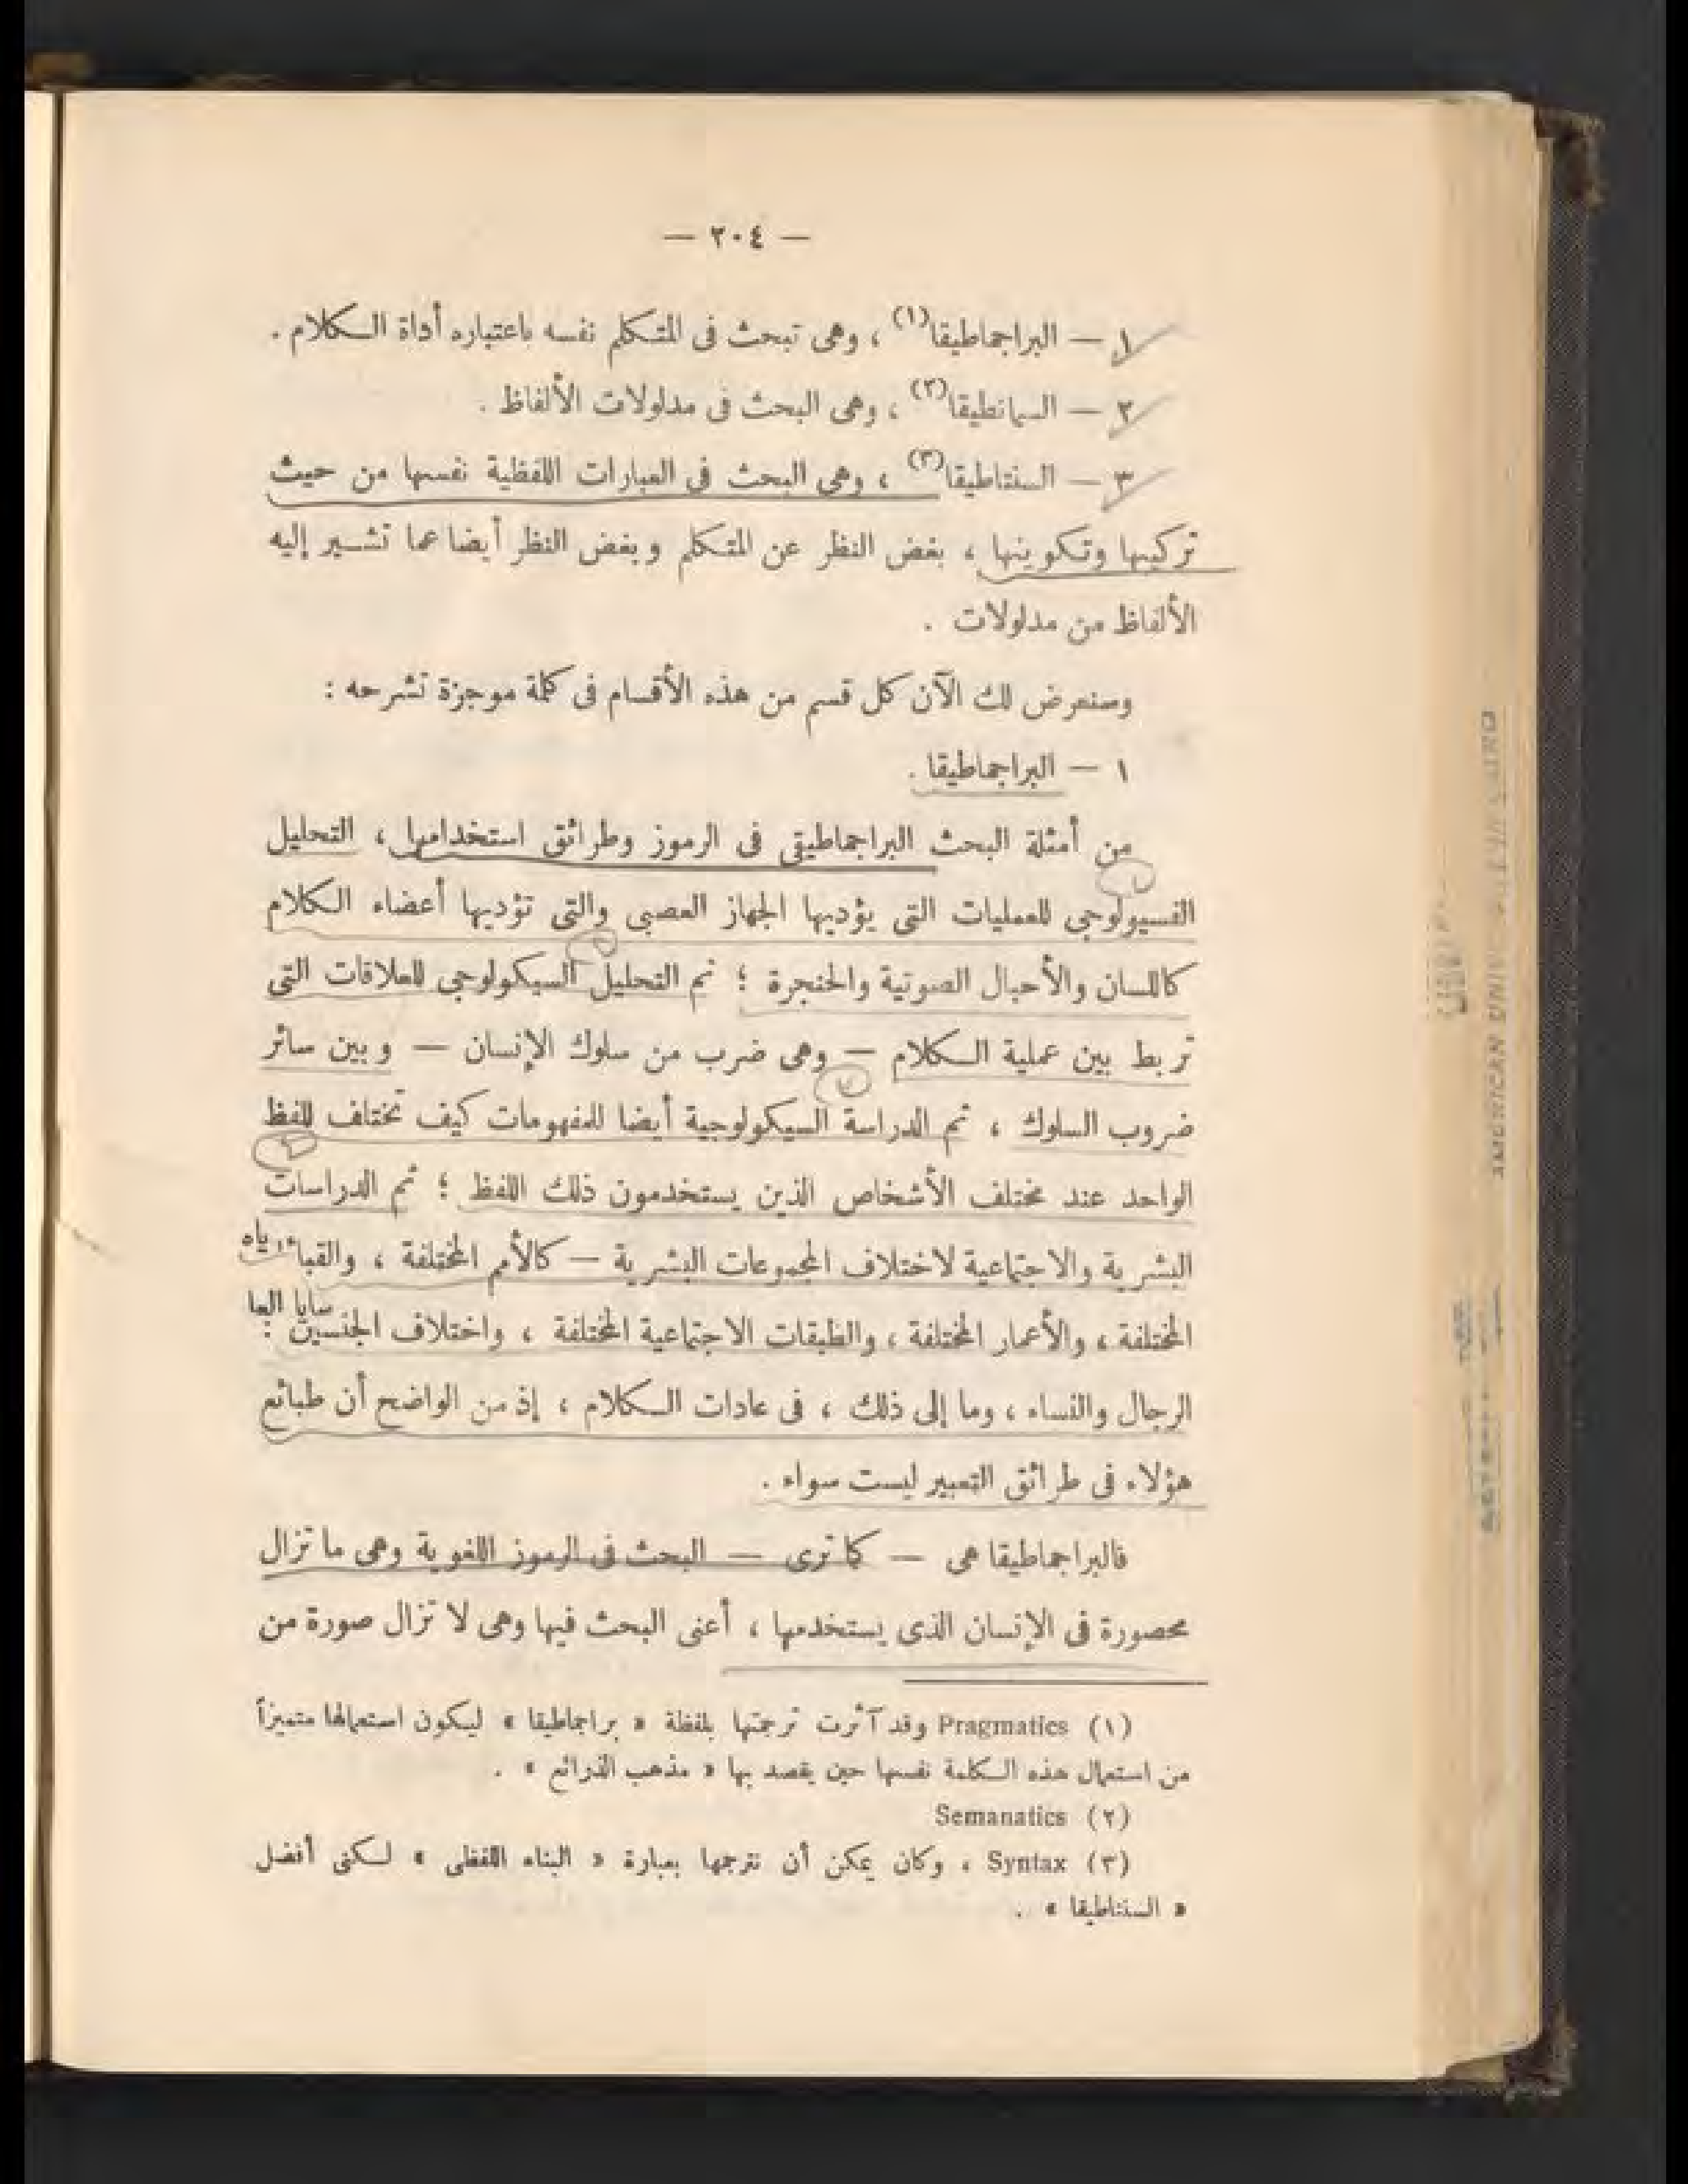 — ٢٠٤ —
١ — البراجماطيقا(١) ، وهى تبحث فى المتكلم نفسه باعتباره أداة الكلام .
٢ — السيمانطيقا(٢) ، وهى البحث فى مدلولات الألفاظ .
٣ — السنتاطيقا(٣) ، وهى البحث فى العبارات اللفظية نفسها من حيث
تركيبها وتكوينها ، بغض النظر عن المتكلم وبغض النظر أيضا عما تشير إليه
الألفاظ من مدلولات .
وسنعرض لك الآن كل قسم من هذه الأقسام فى كلمة موجزة تشرحه :
١ — البراجماطيقا .
من أمثلة البحث البراجماطيقى فى الرموز وطرائق استخدامها ، التحليل
الفسيولوجى للعمليات التى يؤديها الجهاز العصبى والتى تؤديها أعضاء الكلام
كاللسان والأحبال الصوتية والحنجرة ؛ ثم التحليل السيكولوجى للعلاقات التى
تربط بين عملية الكلام — وهى ضرب من سلوك الإنسان — وبين سائر
ضروب السلوك ، ثم الدراسة السيكولوجية أيضا للمفهومات كيف تختلف للفظ
الواحد عند مختلف الأشخاص الذين يستخدمون ذلك اللفظ ؛ ثم الدراسات
البشرية والاجتماعية لاختلاف المجموعات البشرية — كالأمم المختلفة ، والقبا
المختلفة ، والأعمار المختلفة ، والطبقات الاجتماعية المختلفة ، واختلاف الجنسين :
الرجال والنساء ، وما إلى ذلك ، فى عادات الكلام ، إذ من الواضح أن طبائع
هؤلاء فى طرائق التعبير ليست سواء .
فالبراجماطيقا هى — كما ترى — البحث فى الرموز اللغوية وهى ما تزال
محصورة فى الإنسان الذى يستخدمها ، أعنى البحث فيها وهى لا تزال صورة من
(١) Pragmatics وقد آثرت ترجمتها بلفظة « براجماطيقا » ليكون استعمالها متميزاً
من استعمال هذه الكلمة نفسها حين يقصد بها « مذهب الذرائع » .
(٢) Semanatics
(٣) Syntax ، وكان يمكن أن نترجمها بعبارة « البناء اللفظى » لكنى أفضل
« السنتاطيقا » .